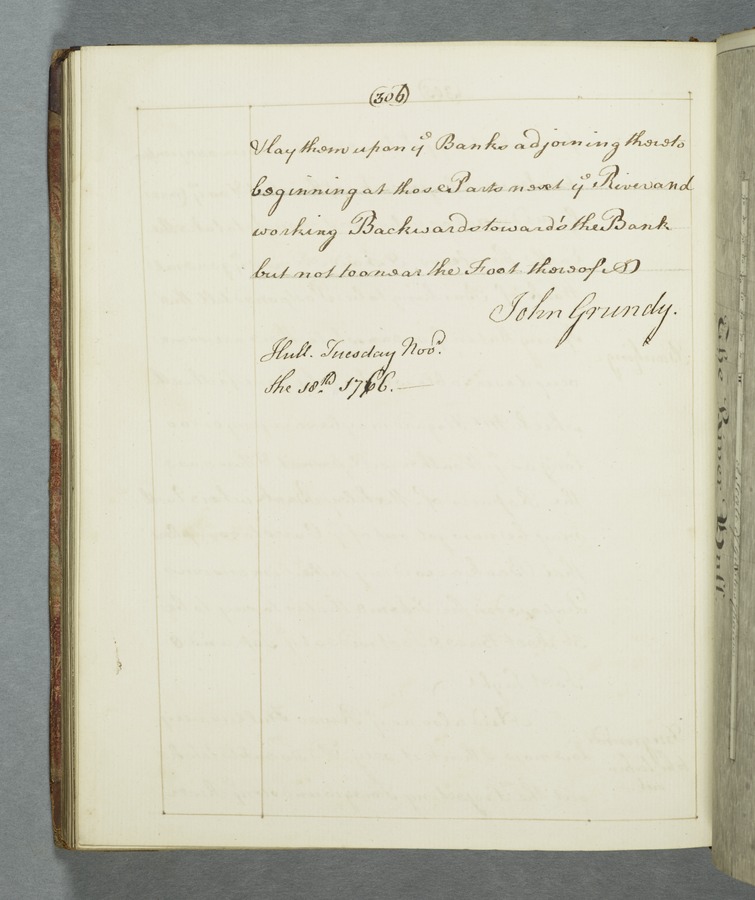 (306)
& lay them upon yᵉ Banks adjoining thereto
beginning at those Parts next yᵉ River and
working Backwards towards the Bank
but not too near the Foot thereof
John Grundy.
Hull. Tuesday Novʳ.
the 18.th 1766.
The River Hull